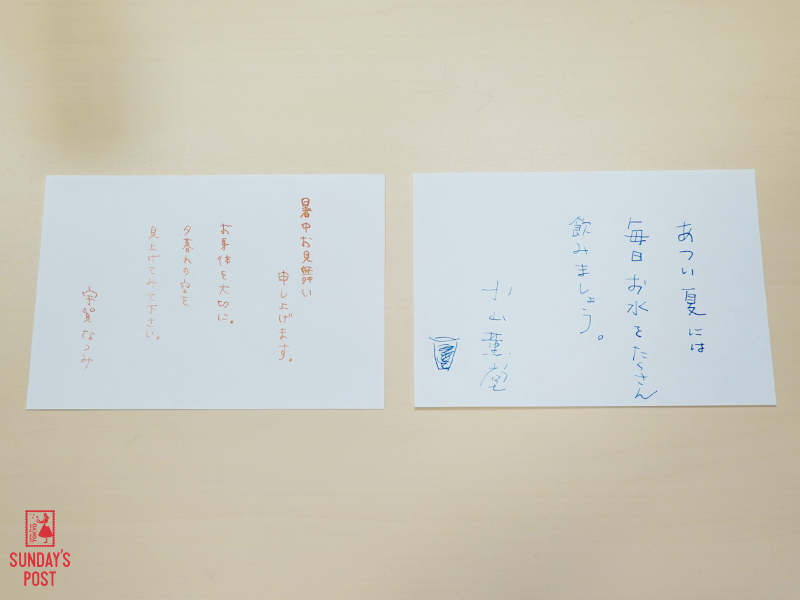 暑中お見舞い
申し上げます。
お身体を大切に。
夕暮れの空を
見上げてみて下さい。
宇賀なつみ
あつい夏には
毎日お水をたくさん
飲みましょう。
小山薫堂
SUNDAY'S
POST